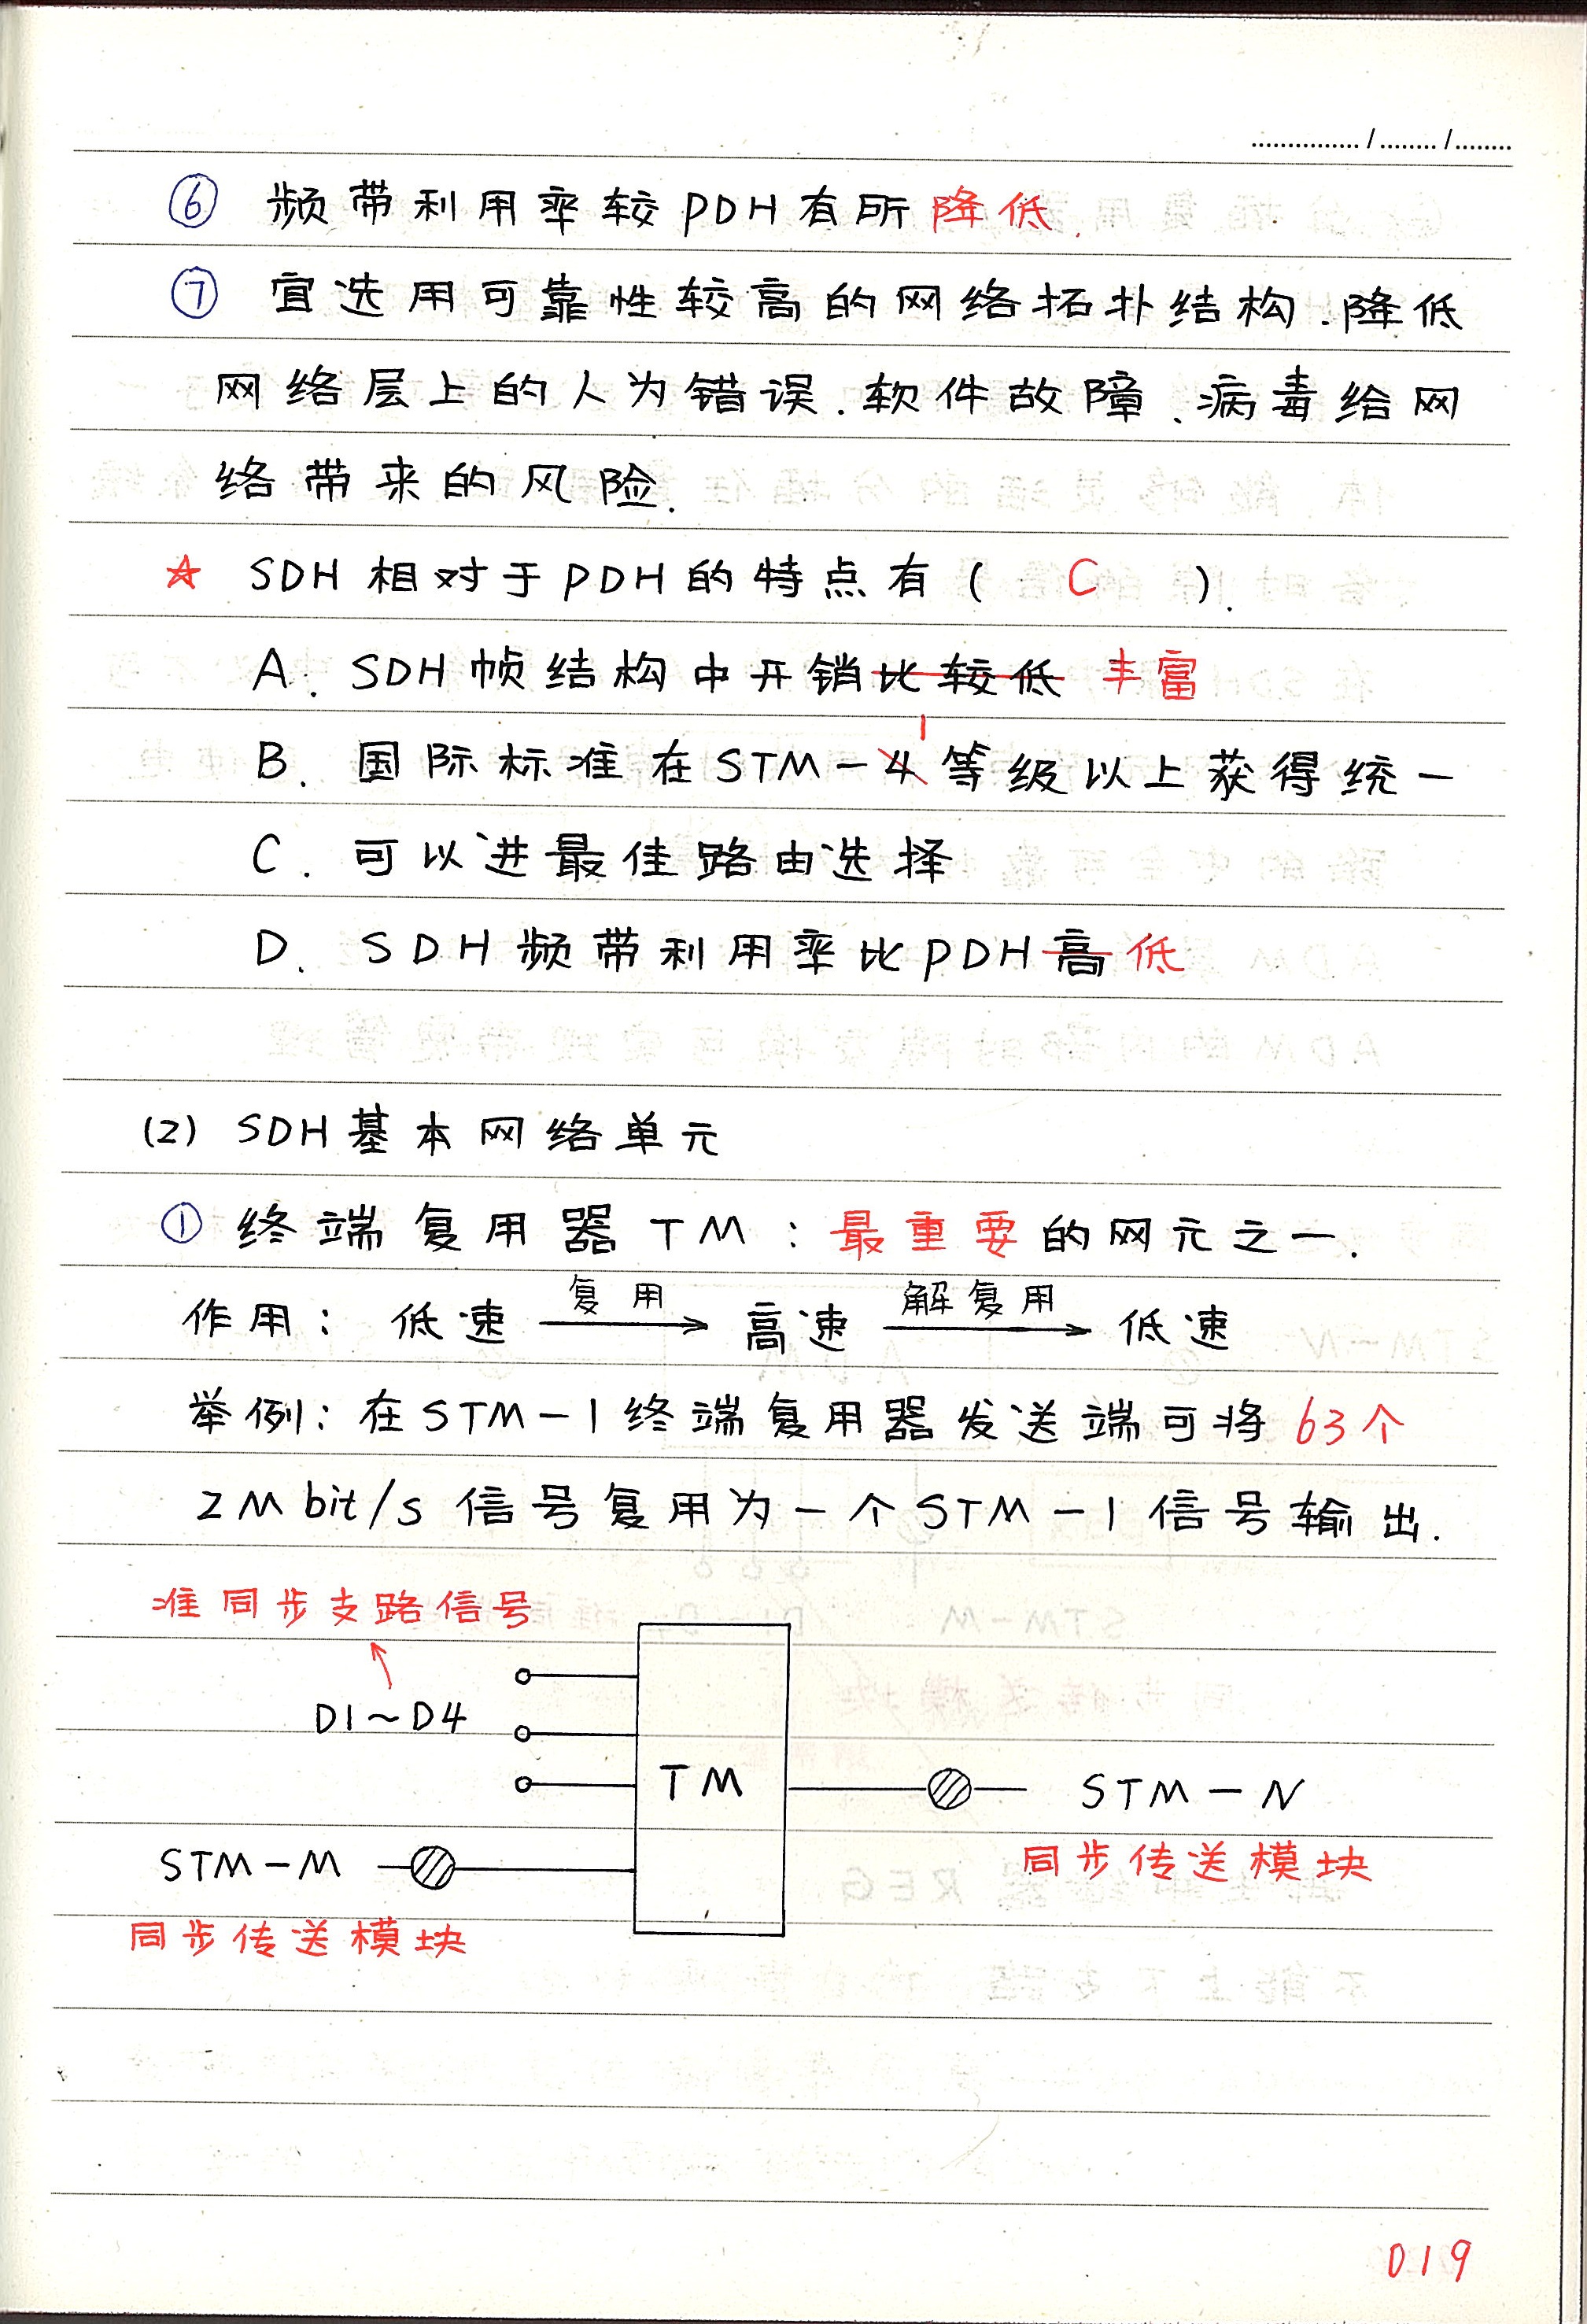 ............... / ........ / ........
⑥ 频带利用率较PDH有所降低.
⑦ 宜选用可靠性较高的网络拓扑结构.降低
网络层上的人为错误.软件故障、病毒给网
络带来的风险.
☆ SDH相对于PDH的特点有( C ).
A. SDH帧结构中开销比较低 丰富
B. 国际标准在STM-4 1等级以上获得统一
C. 可以进最佳路由选择
D. SDH频带利用率比PDH高 低
(2) SDH基本网络单元
① 终端复用器TM:最重要的网元之一.
作用: 低速 复用→ 高速 解复用→ 低速
举例:在STM-1终端复用器发送端可将63个
2Mbit/s信号复用为一个STM-1信号输出.
准同步支路信号
D1~D4
TM
STM-N
同步传送模块
STM-M
同步传送模块
019